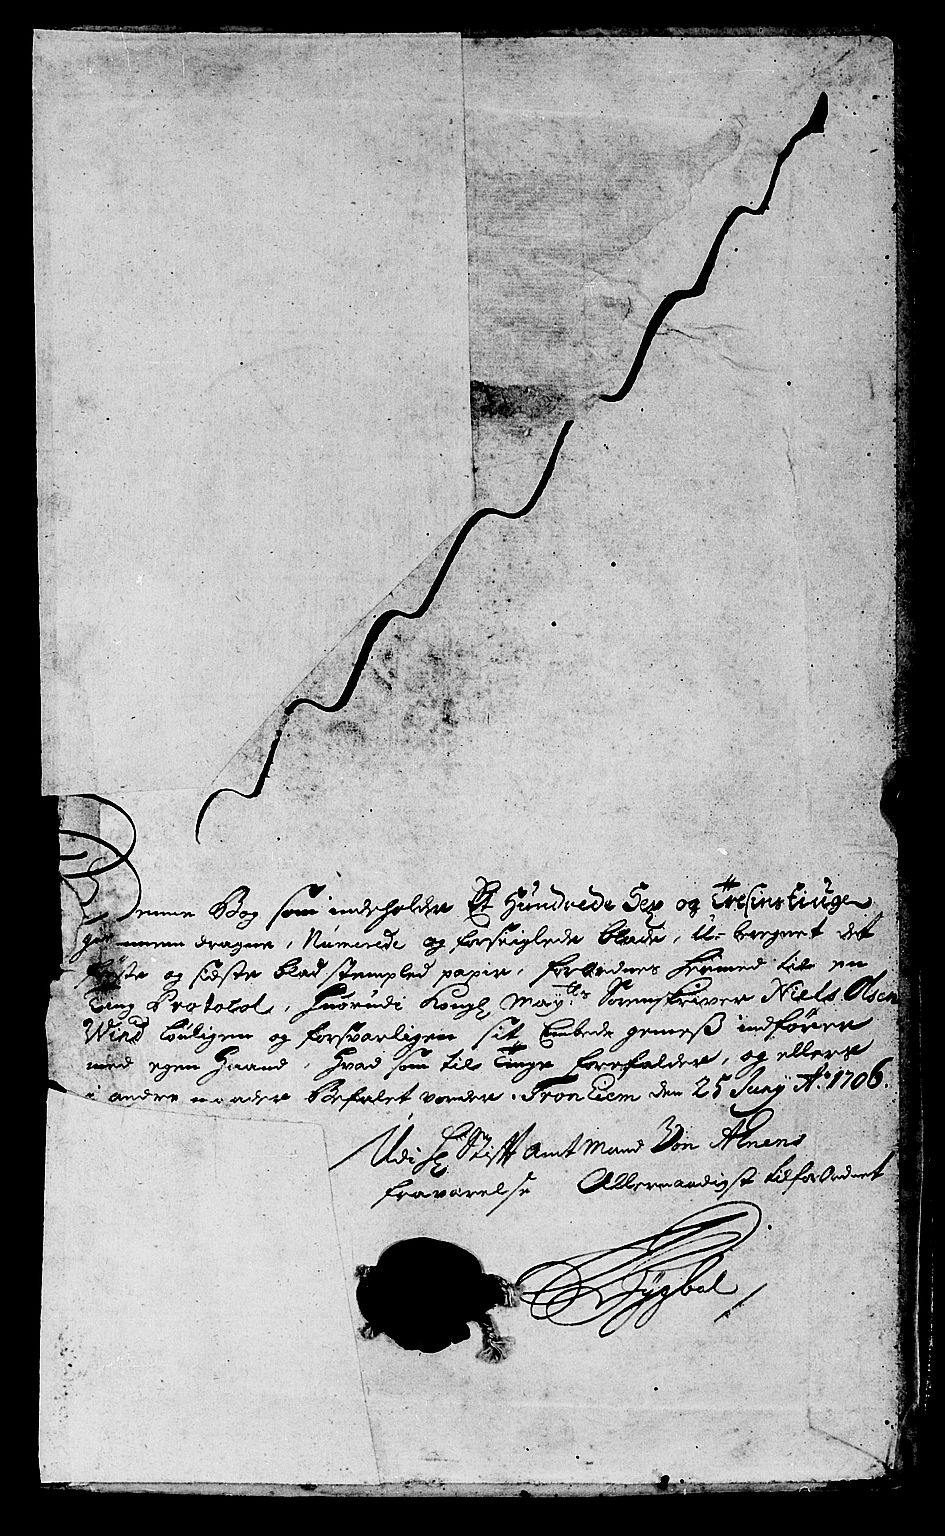 Denne Bog som indeholder Et Hundrede Sex og Tresinstiuge
giennemdragne, Numerede og forseiglede blade, U-beregnet det
første og sidste blad stempled papir, forordnes hermed til en
Ting Protocol, huorudi Kongl. May.ts Sorenskriver Niels Olsen
Wind louligen og forsvarligen sit Embede gemeß indfører
med egen Haand, hvad som til Tinge forefalder, og ellers
i andre maader Befalet vorder. Tronhiem den 25 Junij A.o 1706.
Udi H. Stifft Amt Mand Von Ahnens
fraværelse Allernaadigst tilforordnet